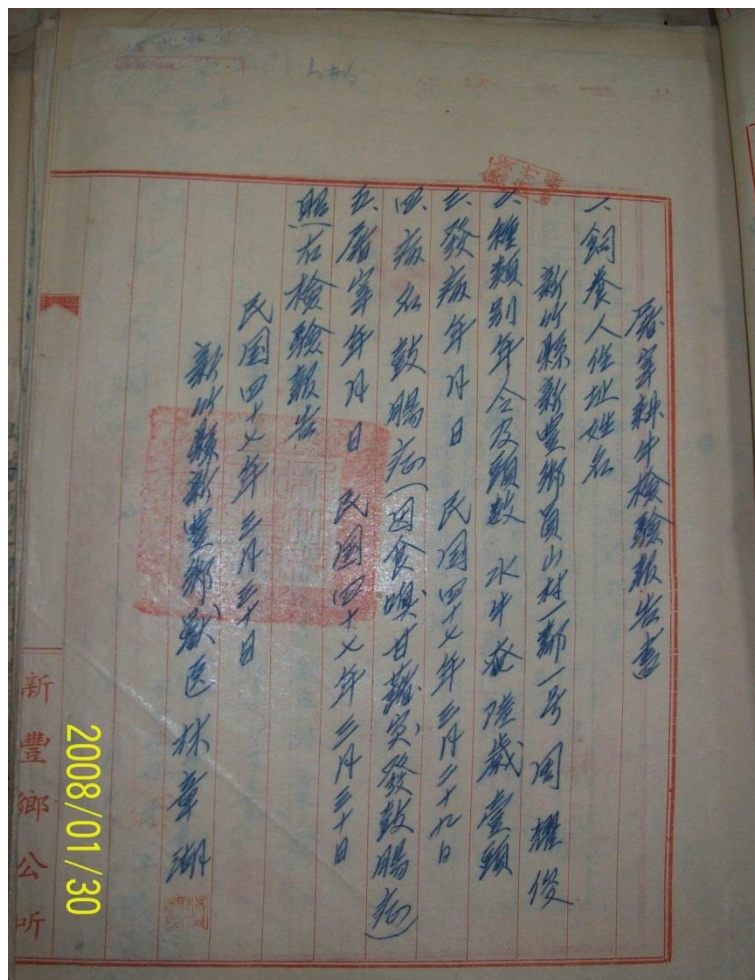 屠宰耕牛檢驗報告書
一、飼養人住址姓名
新竹縣新豐鄉員山村一鄰一号 周耀俊
二、種類別年令及頭数 水牛 陸歲壹頭
三、發病年月日 民国四十七年三月二十九日
四、病名 鼓腸病(因食喫甘藷突發鼓腸病)
五、屠宰年月日 民国四十七年三月三十日
照右檢驗報告
民国四十七年三月三十日
新竹縣新豐鄉獸医 林章湖
新豐鄉公所
2008/01/30